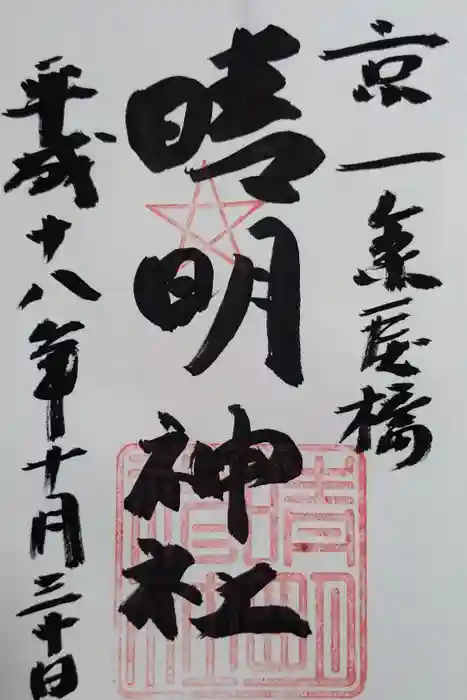 京一条戻橋
晴明神社
平成十八年十月三十日